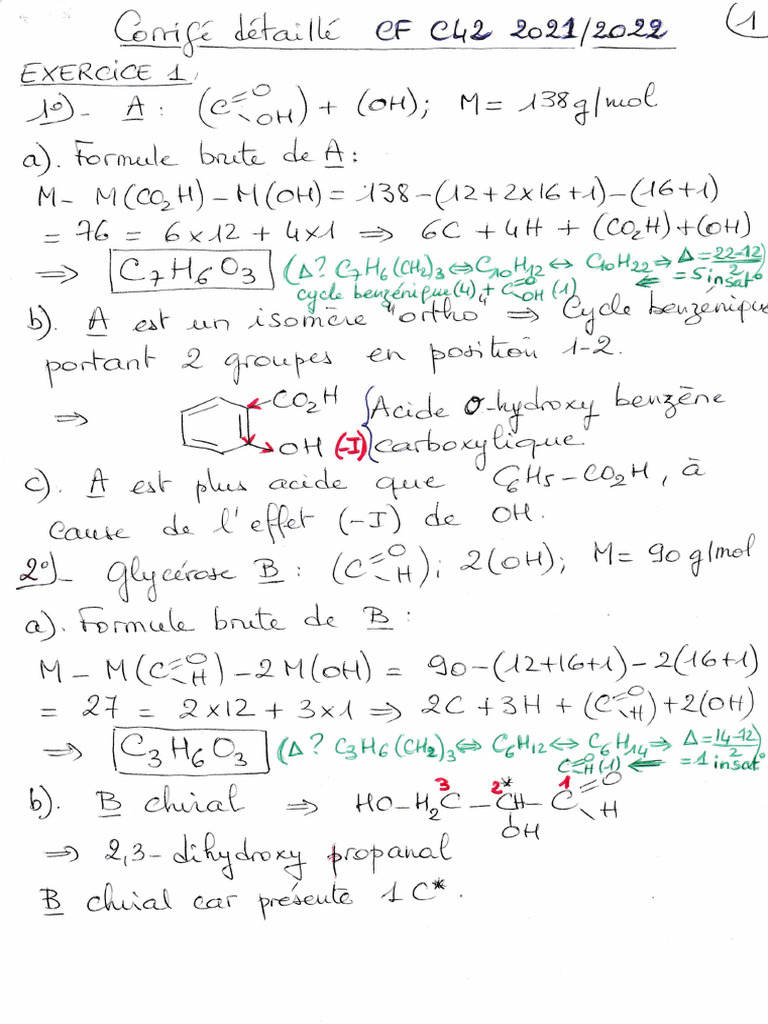 Corrigé détaillé CF C42 2021/2022 (1
EXERCICE 1.
1°)- A : (C=O OH) + (OH); M = 138 g/mol
a). Formule brute de A :
M - M(CO2H) - M(OH) = 138 - (12+2x16+1) - (16+1)
= 76 = 6x12 + 4x1 ⇒ 6C + 4H + (CO2H)+(OH)
⇒ C7H6O3 (Δ? C7H6(CH2)3 ⇔ C10H12 ⇔ C10H22 ⇒ Δ = 22-12/2
cycle benzénique(4) + C=O OH (1) ⇐ = 5 insat°)
b). A est un isomère "ortho" ⇒ Cycle benzénique
portant 2 groupes en position 1-2.
⇒ CO2H OH (-I) Acide o-hydroxy benzène
carboxylique.
c). A est plus acide que C6H5-CO2H, à
cause de l'effet (-I) de OH.
2°)- Glycérose B : (C=O H); 2(OH); M = 90 g/mol
a). Formule brute de B :
M - M(C=O H) - 2M(OH) = 90 - (12+16+1) - 2(16+1)
= 27 = 2x12 + 3x1 ⇒ 2C + 3H + (C=O H) + 2(OH)
⇒ C3H6O3 (Δ? C3H6(CH2)3 ⇔ C6H12 ⇔ C6H14 ⇒ Δ = 14-12/2
C=O H (1) ⇐ = 1 insat°)
b). B chiral ⇒ HO-H2C - CH - C=O H
3 2* 1
OH
⇒ 2,3-dihydroxy propanal
B chiral car présente 1 C*.